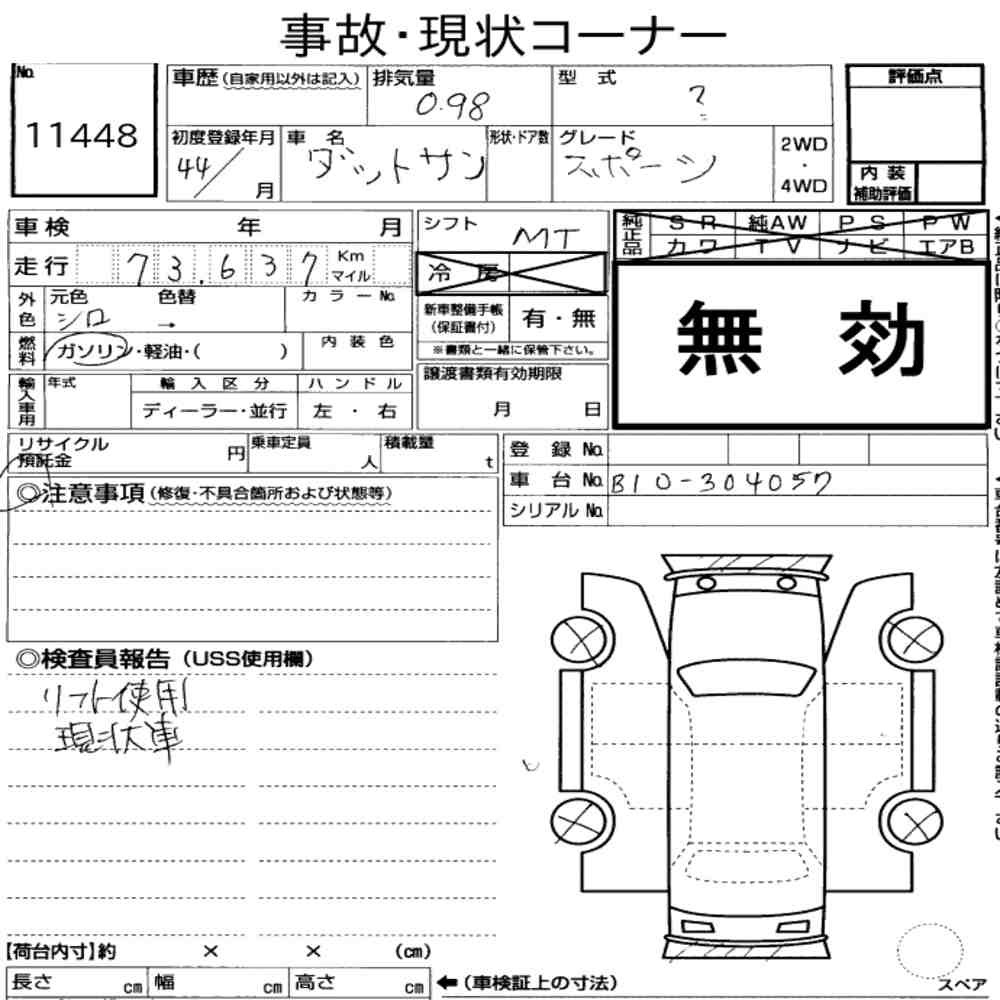 事故・現状コーナー
No.
11448
車歴(自家用以外は記入)
排気量
0.98
型 式
?
評価点
初度登録年月
44/
月
車 名
ダットサン
形状・ドア数
グレード
スポーツ
2WD
・
4WD
内 装
補助評価
車検 年 月
シフト
MT
純正品
SR 純AW PS PW
カワ TV ナビ エアB
走行 73,637 Km マイル
冷 房
外色
元色 色替
シロ →
カラーNo.
新車整備手帳
(保証書付)
有・無
※書類と一緒に保管下さい。
無 効
燃料
ガソリン・軽油・( )
内装色
輸入車用
年式
輸入区分
ディーラー・並行
ハンドル
左 ・ 右
譲渡書類有効期限
月 日
リサイクル
預託金 円
乗車定員
人
積載量
t
登 録 No.
車 台 No. B10-304057
シリアル No.
◎注意事項(修復・不具合箇所および状態等)
◎検査員報告(USS使用欄)
リフト使用
現状車
【荷台内寸】約 × × (cm)
長さ cm 幅 cm 高さ cm
←(車検証上の寸法)
スペア